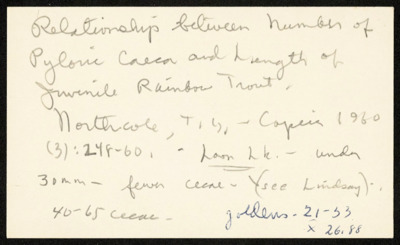 Relationship between Number of
Pyloric Caeca and Length of
Juvenile Rainbow Trout.
Northcote, T.G. - Copeia 1960
(3): 248-60. - Loon Lk. - under
30mm - fewer cecae - (see Lindsay).
40-65 cecae - goldens - 21-53
x 26.88